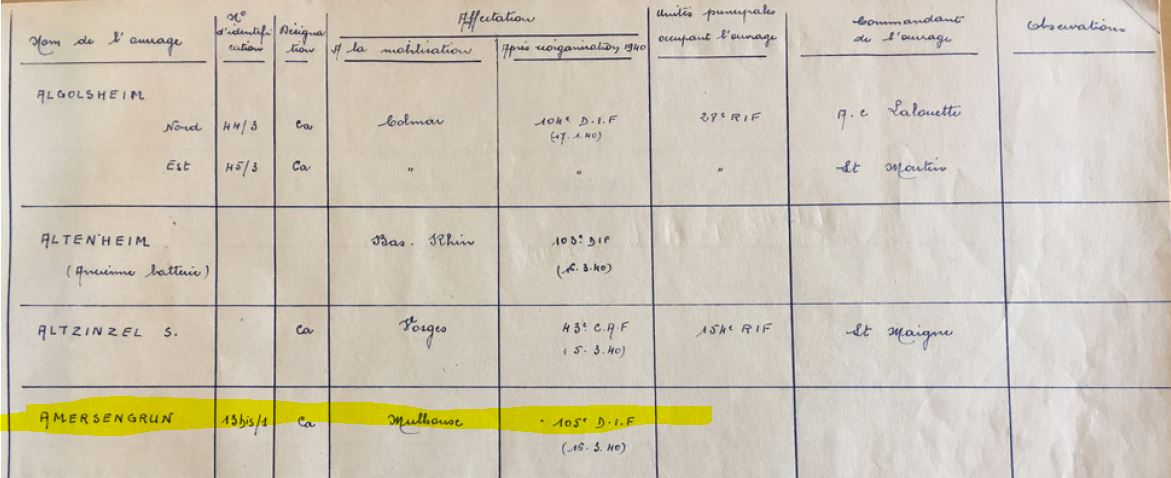 Nom de l'ouvrage | N° d'identification | Désignation | Affectation | Unités principales occupant l'ouvrage | Commandant de l'ouvrage | Observations
A la mobilisation | Après réorganisation 1940
ALGOLSHEIM
Nord | 44/3 | Ca | Colmar | 104e D.I.F | 28e RIF | A.c Lalouette
(17.1.40)
Est | 45/3 | Ca | " | " | " | Lt Martin
ALTENHEIM | Bas-Rhin | 103e DIF
(Ancienne batterie) | (16.3.40)
ALTZINZEL S. | Ca | Vosges | 43e C.A.F | 154e RIF | Lt Maigne
(5.3.40)
AMERSENGRUN | 13bis/1 | Ca | Mulhouse | 105e D.I.F
(16.3.40)